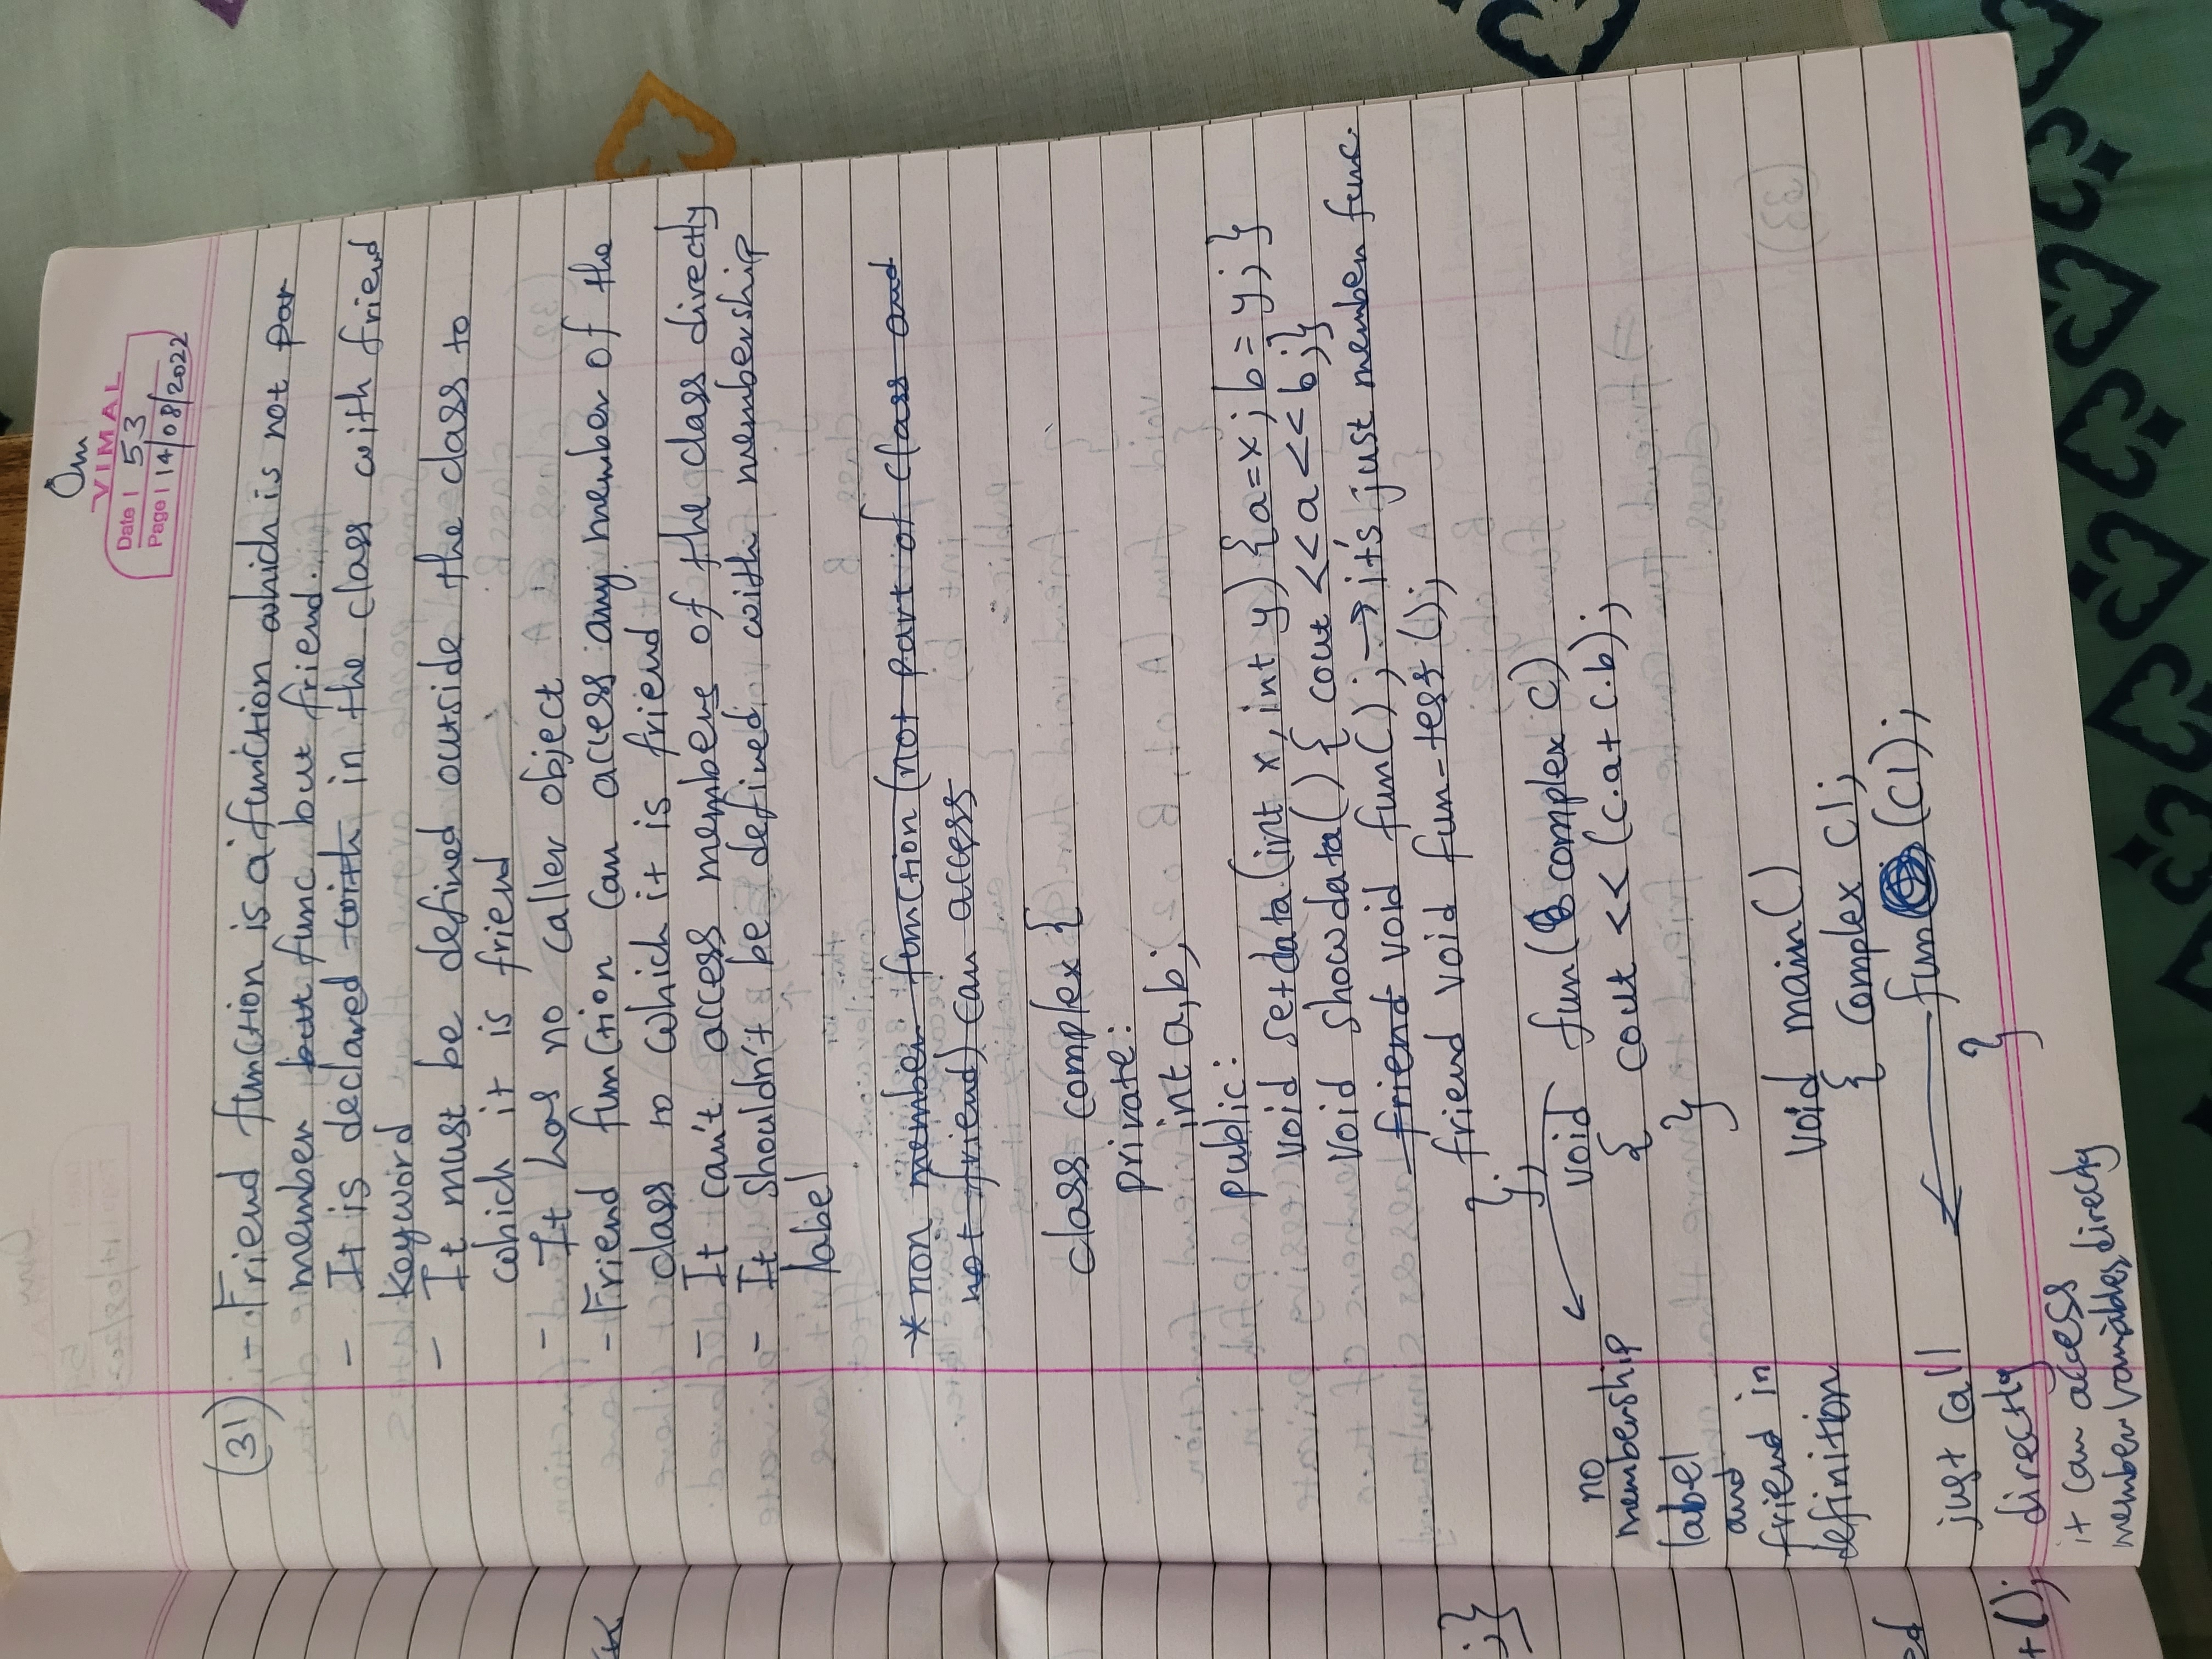 Om
VIMAL
Date | 53
Page | 14/08/2022
(31) - Friend function is a function which is not par
member but func but friend.
- It is declared with in the class with friend
keyword
- It must be defined outside the class to
which it is friend
- It has no caller object
- Friend function can access any member of the
class to which it is friend
- It can't access members of the class directly
- It shouldn't be defined with membership
label
* non member function (not part of class and
not friend) can access
class complex {
private:
int a,b;
public:
void setdata(int x, int y) {a=x; b=y;}
void showdata() { cout <<a<<b;}
friend void fun(); → it's just member func.
friend void fun-test();
};
void fun( complex c)
{ cout << (c.a+c.b);
}
no
membership
label
and
friend in
definition
void main()
{ complex C1;
fun (C1);
}
just call
directly
it can access
member variables directly
;}
ed
+();